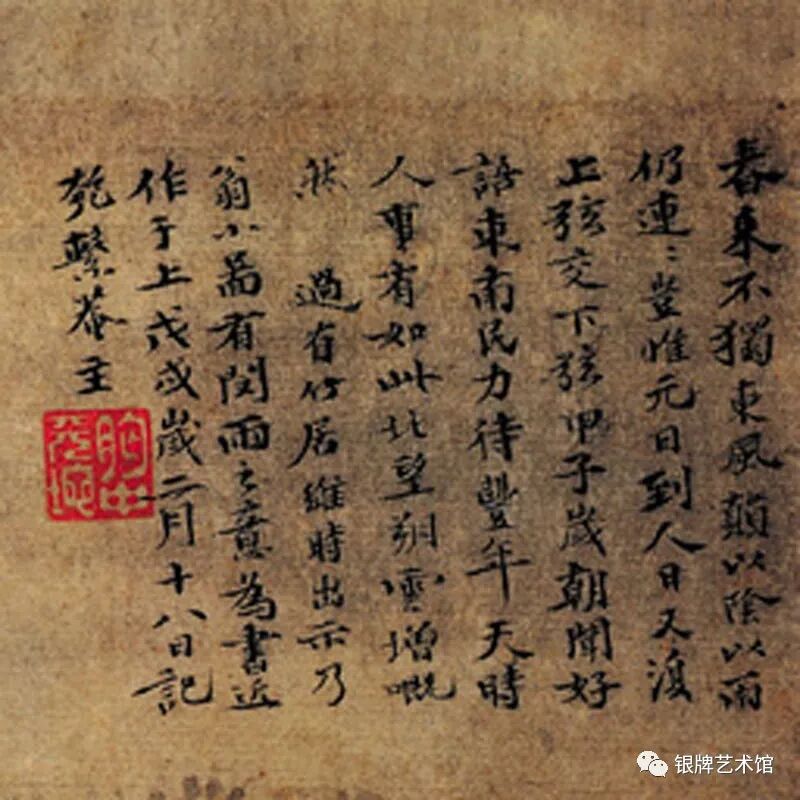 春來不獨東風顛以陰以雨
仍連〻豈惟元日到人日又復
上弦交下弦甲子歲朝聞好
語東南民力待豐年天時
人事有如此北望朔雲增嘅
然 過有竹居維時出示乃
翁小啚有閔雨之意為書近
作于上戊戌歲二月十八日記
匏繫菴主
银牌艺术馆